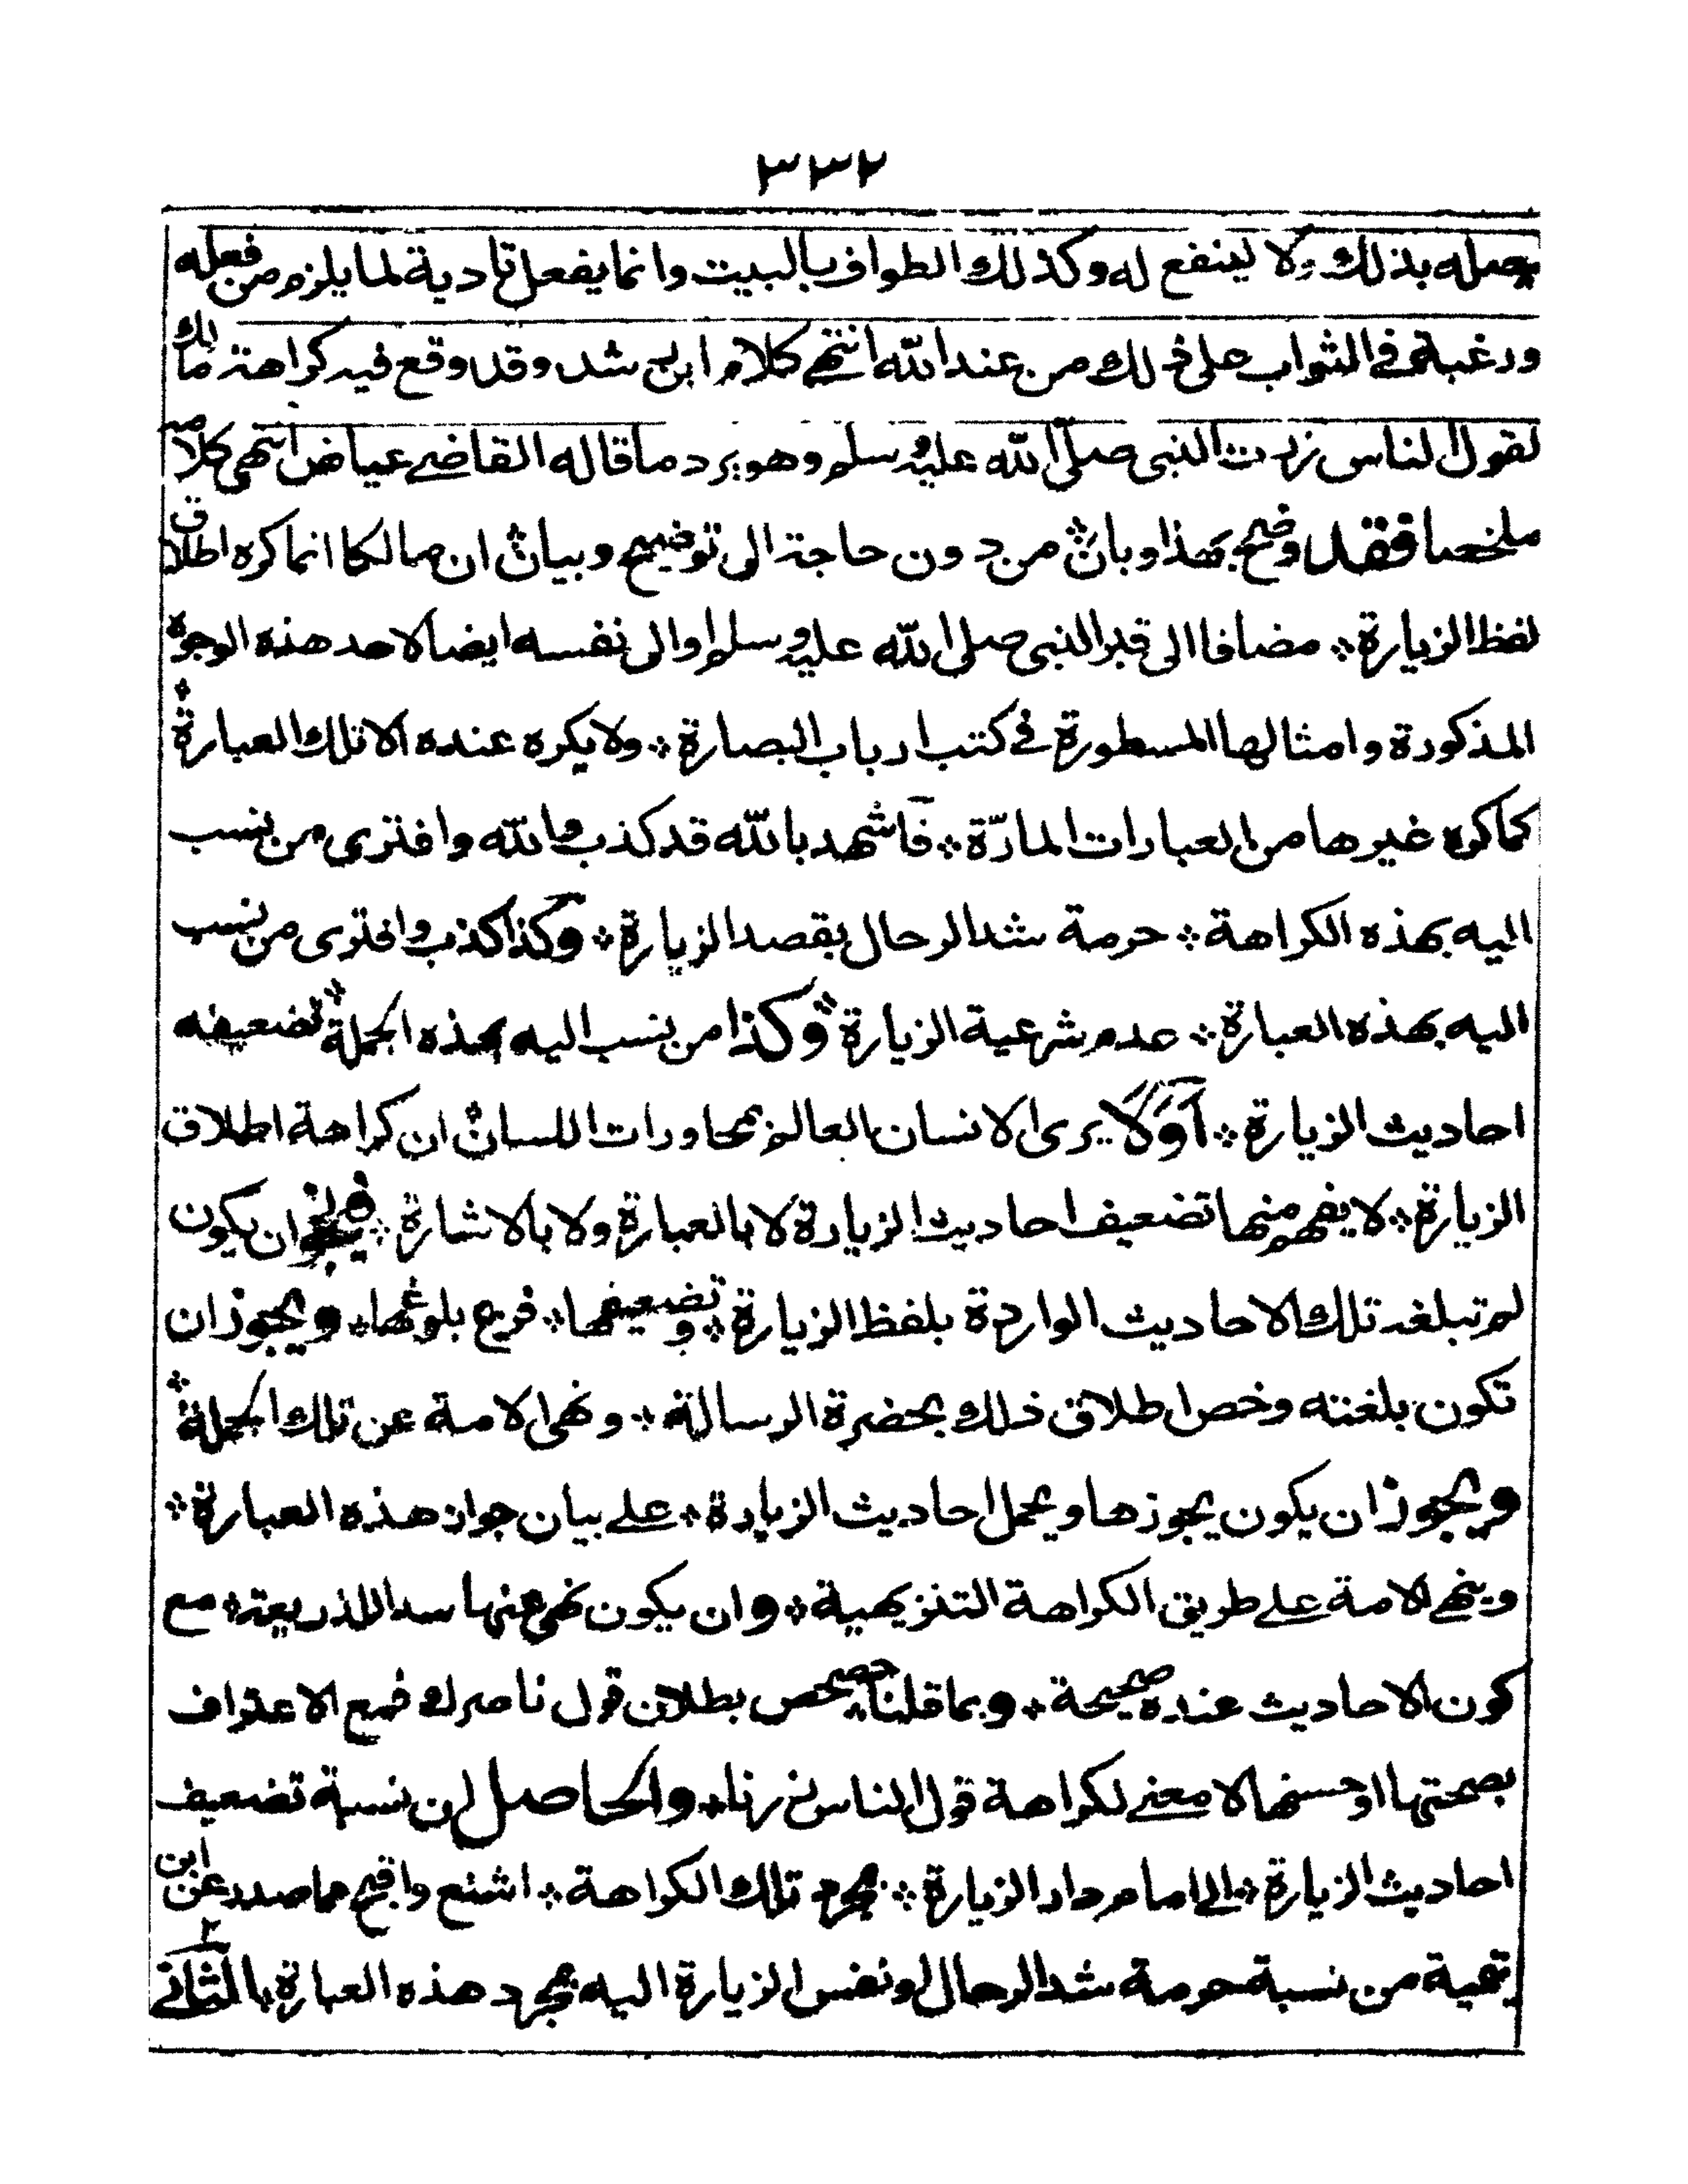 ٣٣٢
يصله بذلك ولا لينفع له وكذلك الطواف بالبيت وانما يفعل تادية لما يلزم من فعله
ورغبة في الثواب على ذلك من عند الله انتهى كلام ابن رشد وقد وقع فيه كراهة مالك
لقول الناس زرت النبى صلى الله عليه وسلم وهو يرد ما قاله القاضى عياض انتهى كلامه
ملخصا فقد وضح بهذا وبان من دون حاجة الى توضيح وبيان ان مالكا انما كره اطلاق
لفظ الزيارة مضافا الى قبر النبى صلى الله عليه وسلم او الى نفسه ايضا لاحد هذه الوجوه
المذكورة وامثالها المسطورة فى كتب ارباب البصارة ولا يكره عنده الا تلك العبارة
كما كره غيرها من العبارات المارّة فاشهد بالله قد كذب والله وافترى من نسب
اليه بهذه الكراهة حرمة شد الرحال بقصد الزيارة وكذا كذب وافترى من نسب
اليه بهذه العبارة عدم شرعية الزيارة وكذا من نسب اليه بهذه الجملة تضعيفه
احاديث الزيارة اَوَلَا يرى الانسان العالم بمحاورات اللسان ان كراهة اطلاق
الزيارة لا يفهم منها تضعيف احاديث الزيارة لا بالعبارة ولا بالاشارة فيجوز ان يكون
لم تبلغه تلك الاحاديث الواردة بلفظ الزيارة وتضعيفها فرع بلوغها ويجوز ان
تكون بلغته وخص اطلاق ذلك بحضرة الرسالة ونهى الامة عن تلك الجملة
ويجوز ان يكون يجوزها ويحمل احاديث الزيارة على بيان جواز هذه العبارة
وينهى الامة على طريق الكراهة التنزيهية وان يكون نهى عنها سدا للذريعة مع
كون الاحاديث عنده صحيحة وبما قلنا حصحص بطلان قول ناصرك فمع الاعتراف
بصحتها او حسنها لا معنى لكراهة قول الناس زرنا والحاصل ان نسبة تضعيف
احاديث الزيارة الى امام دار الزيارة بمجرد تلك الكراهة اشنع واقبح مما صدر عن ابن
تيمية من نسبة حرمة شد الرحال او نفس الزيارة اليه بمجرد هذه العبارة الثانى